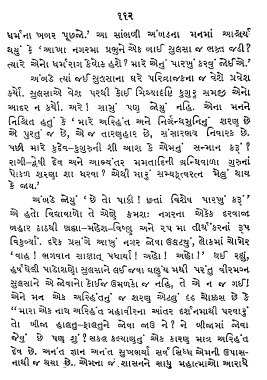 ૧૧૨
ધર્મના ખબર પૂછજો.' આ સાંભળી અંબડના મનમાં આશ્ચર્ય
થયું કે 'આખા નગરમાં પ્રભુને એક બાઈ સુલસા જ ભક્ત જડી?
ત્યારે એનો ધર્મરાગ કેવોક હશે? મારે એનું પારખું કરવું જોઈએ.'
અંબડે ત્યાં જઈ સુલસાના ઘરે પરિવ્રાજકના જ વેશે પ્રવેશ
કર્યો. સુલસાએ વેશ પરથી કોઈ મિથ્યાદષ્ટિ કુગુરુ સમજી એનો
આદર ન કર્યો. અરે! સામું પણ જોયું નહિ. એના મનને
નિશ્ચિત હતું કે 'મારે અરિહંત અને નિર્ગ્રન્થમુનિનું શરણું છે
એ પુરતું જ છે, એ જ તારણહાર છે, સંસારભય નિવારક છે.
પછી મારે કુદેવ-કુગુરુની શી આશ કે એમનું સન્માન કરૂં?
રાગી-દ્વેષી દેવ અને આભ્યંતર મમતાદિની ગ્રન્થિવાળા ગુરુનાં
પોકળ શરણાં શા ધરવા? એથી મારૂં સમ્યક્ત્વરત્ન મેલું થાય
કે જાય.'
અંબડે જોયું 'છે તો પાકી! છતાં વિશેષ પારખું કરૂં'
એ હતો વિદ્યાવાળો તે એણે ક્રમશઃ નગરના એકેક દરવાજા
બહાર ઠાઠથી બ્રહ્મા-મહેશ-વિષ્ણુ અને ૨૫ મા તીર્થંકરનાં રૂપ
વિકુર્વ્યા. દરેક પ્રસંગે આખું નગર જોવા ઉલટ્યું, લોકમાં ચોમેર
'વાહ! ભગવાન સાક્ષાત્ પધાર્યા! અહો! અહો!' થઈ રહ્યું,
હર્ષઘેલી પાડોશણો સુલસાને લઈ જવા ઘણું ય મથી પરંતુ વીરમગ્ન
સુલસાને એ જોવાનો કોઈજ ઉમળકો જ નહિ, તે એ ન જ ગઈ!
એને મન એક અરિહંતનું જ શરણું એટલું દૃઢ ચોક્કસ છે કે
"મારા એક નાથ અરિહંત મહાવીરના આંતર દર્શનમાંથી પરવારું
તો બીજા હાલતુ-ફાલતુને જોવા જાઉં ને? ને બીજામાં જોવા
જેવું છે પણ શું? સકલ કલ્યાણનું એક કારણ માત્ર અરિહંત
દેવ છે. અનંત જ્ઞાન અનંત સુખભર્યા સર્વ સિધ્ધ એમની ઉપાસ-
નાથી જ થયા છે.. એમનાં જ શાસનને સાધુ મહાત્માઓ આરાધે